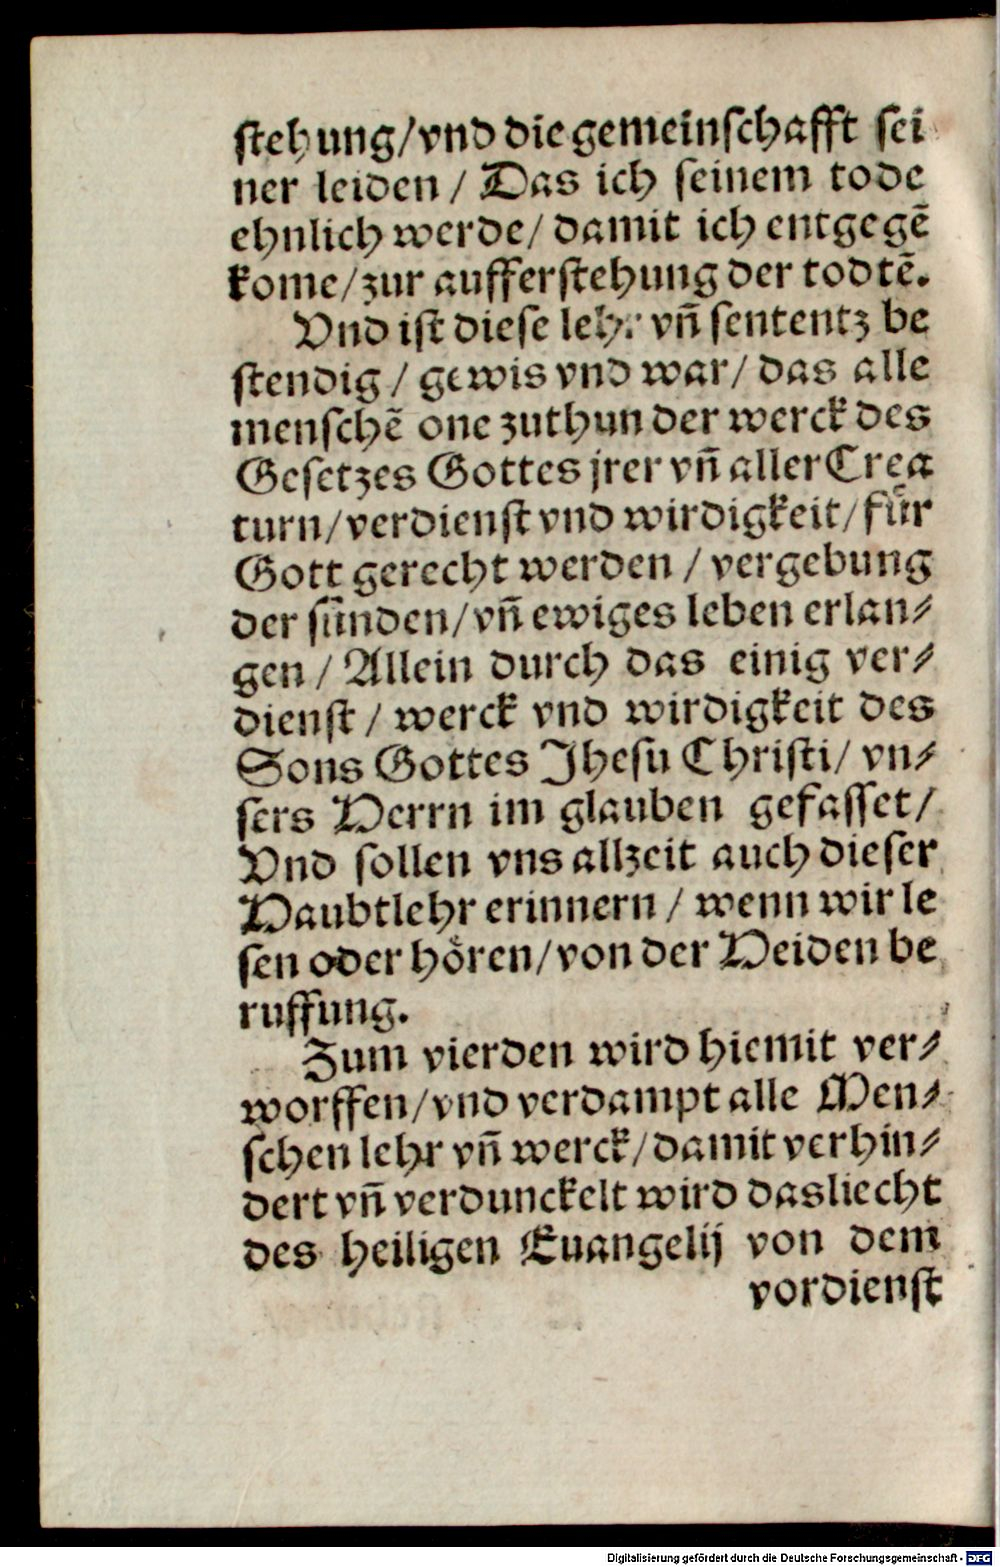 stehung/vnd die gemeinschafft sei
ner leiden / Das ich seinem tode
ehnlich werde/ damit ich entgegē
kome/zur aufferstehung der todtē.
Vnd ist diese lehr vñ sententz be
stendig / gewis vnd war/ das alle
menschē one zuthun der werck des
Gesetzes Gottes jrer vñ aller Crea
turn/verdienst vnd wirdigkeit/für
Gott gerecht werden / vergebung
der sünden/vñ ewiges leben erlan⸗
gen / Allein durch das einig ver⸗
dienst / werck vnd wirdigkeit des
Sons Gottes Jhesu Christi/ vn⸗
sers Herrn im glauben gefasset/
Vnd sollen vns allzeit auch dieser
Haubtlehr erinnern / wenn wir le
sen oder hören/von der Heiden be
ruffung.
Zum vierden wird hiemit ver⸗
worffen/vnd verdampt alle Men⸗
schen lehr vñ werck/damit verhin⸗
dert vñ verdunckelt wird das liecht
des heiligen Euangelij von dem
vordienst
Digitalisierung gefördert durch die Deutsche Forschungsgemeinschaft - DFG